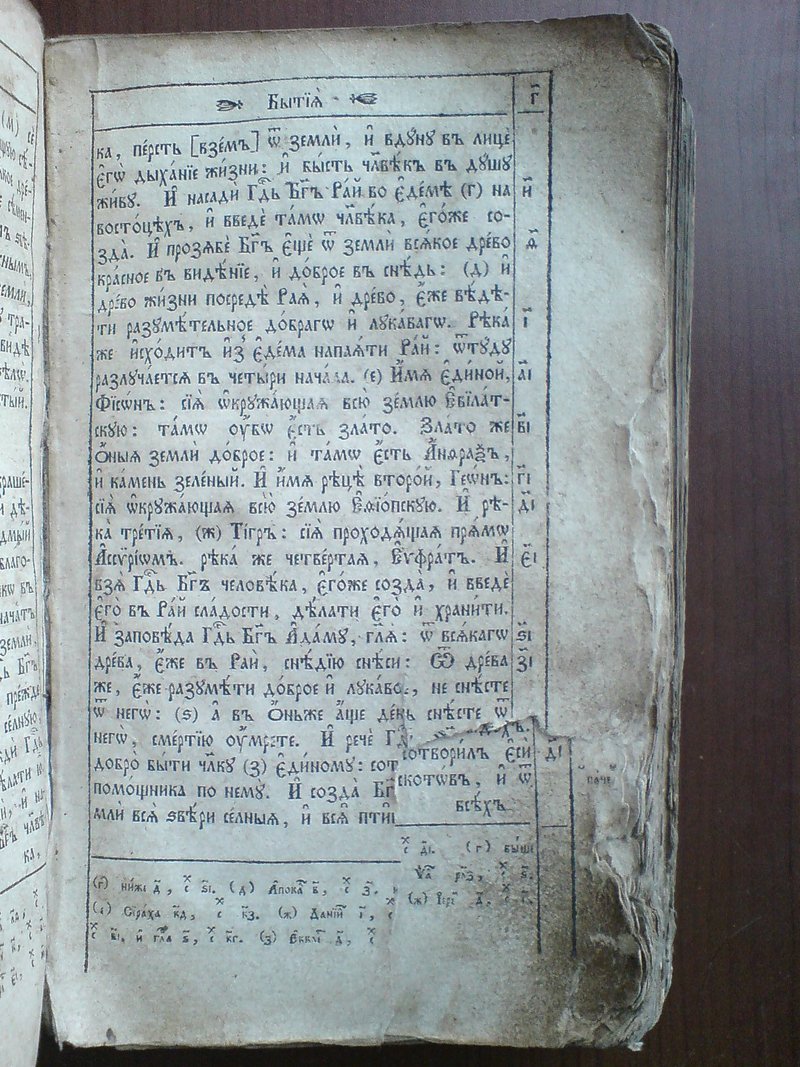 Бытїѧ̀ г҃
ка, пе́рсть [взе́мъ] ѿ землѝ, и҆ вдꙋ́нꙋ въ лицѐ
є҆гѡ̀ дыха́нїе жи́зни: и҆ бы́сть чл҃вѣ́къ въ дꙋ́шꙋ
жи́вꙋ. И҆ насадѝ Гдⷭ҇ь Бг҃ъ Ра́й во є҆де́мѣ (г) на и҃
восто́цѣхъ, и҆ введѐ та́мѡ чл҃вѣ́ка, є҆го́же со-
зда̀. И҆ прозѧбѐ Бг҃ъ є҆щѐ ѿ землѝ всѧ́кое дре́во ѳ҃
кра́сное въ ви́дѣнїе, и҆ до́брое въ снѣ́дь: (д) и҆
дре́во жи́зни посредѣ̀ Раѧ̀, и҆ дре́во, є҆́же вѣ́дѣ-
ти разꙋмѣ́тельное до́брагѡ и҆ лꙋка́вагѡ. Рѣка́ і҃
же и҆схо́дитъ и҆з̾ є҆де́ма напаѧ́ти Ра́й: ѿтꙋ́дꙋ
разлꙋча́етсѧ въ четы́ри нача́ла. (є) И҆́мѧ є҆ди́ной, а҃і
Фїсѡ́нъ: сїѧ̀ ѡ҆крꙋжа́ющаѧ всю̀ зе́млю Є҆вїла́т-
скꙋю: та́мѡ ᲂу҆́бѡ є҆́сть зла́то. Зла́то же в҃і
ѻ҆́ныѧ землѝ до́брое: и҆ та́мѡ є҆́сть А҆́нѳраѯъ,
и҆ ка́мень зеле́ный. И҆ и҆́мѧ рѣцѣ̀ второ́й, Геѡ́нъ: г҃і
сїѧ̀ ѡ҆крꙋжа́ющаѧ всю̀ зе́млю Е҆ѳїо́пскꙋю. И҆ рѣ- д҃і
ка̀ тре́тїѧ, (ж) Ті́гръ: сїѧ̀ проходѧ́щаѧ прѧ́мѡ
А҆ссѷрі́ѡмъ. рѣка́ же четве́ртаѧ, Е҆ѵфра́тъ. И҆ є҃і
взѧ̀ Гдⷭ҇ь Бг҃ъ человѣ́ка, є҆го́же созда̀, и҆ введѐ
є҆го̀ въ Ра́й сла́дости, дѣ́лати є҆го̀ и҆ храни́ти.
И҆ заповѣ́да Гдⷭ҇ь Бг҃ъ А҆да́мꙋ, гл҃ѧ: ѿ всѧ́кагѡ ѕ҃і
дре́ва, є҆́же въ Раѝ, снѣ́дїю снѣ́си: Ѿ дре́ва з҃і
же, є҆́же разꙋмѣ́ти до́брое и҆ лꙋка́вое, не снѣ́сте
ѿ негѡ̀: (ѕ) а҆ въ ѻ҆́ньже а҆́ще де́нь снѣ́сте ѿ
негѡ, сме́ртїю ᲂу҆́мрете. И҆ речѐ
добро̀ бы́ти чл҃кꙋ (з) є҆ди́номꙋ: сот сотвори́лъ є҆сѝ д҃і
помо́щника по немꙋ̀. И҆ созда̀ Бг҃ скотѡ́въ, и҆ ѿ паче
млѝ всѧ̀ ѕвѣ́ри се́лныѧ, и҆ всѧ̑ пти всѣ́хъ
д҃і. (г) вы́ши
(г) ни́жї д҃, ѕ҃і. (д) А҆пока в҃, з҃.
(є) Сїра́ха к҃д, к҃з. (ж) Данїи҃ і҃,
в҃і. и҆ гла в҃, к҃г. (з) Е҆ккл҃ д҃,